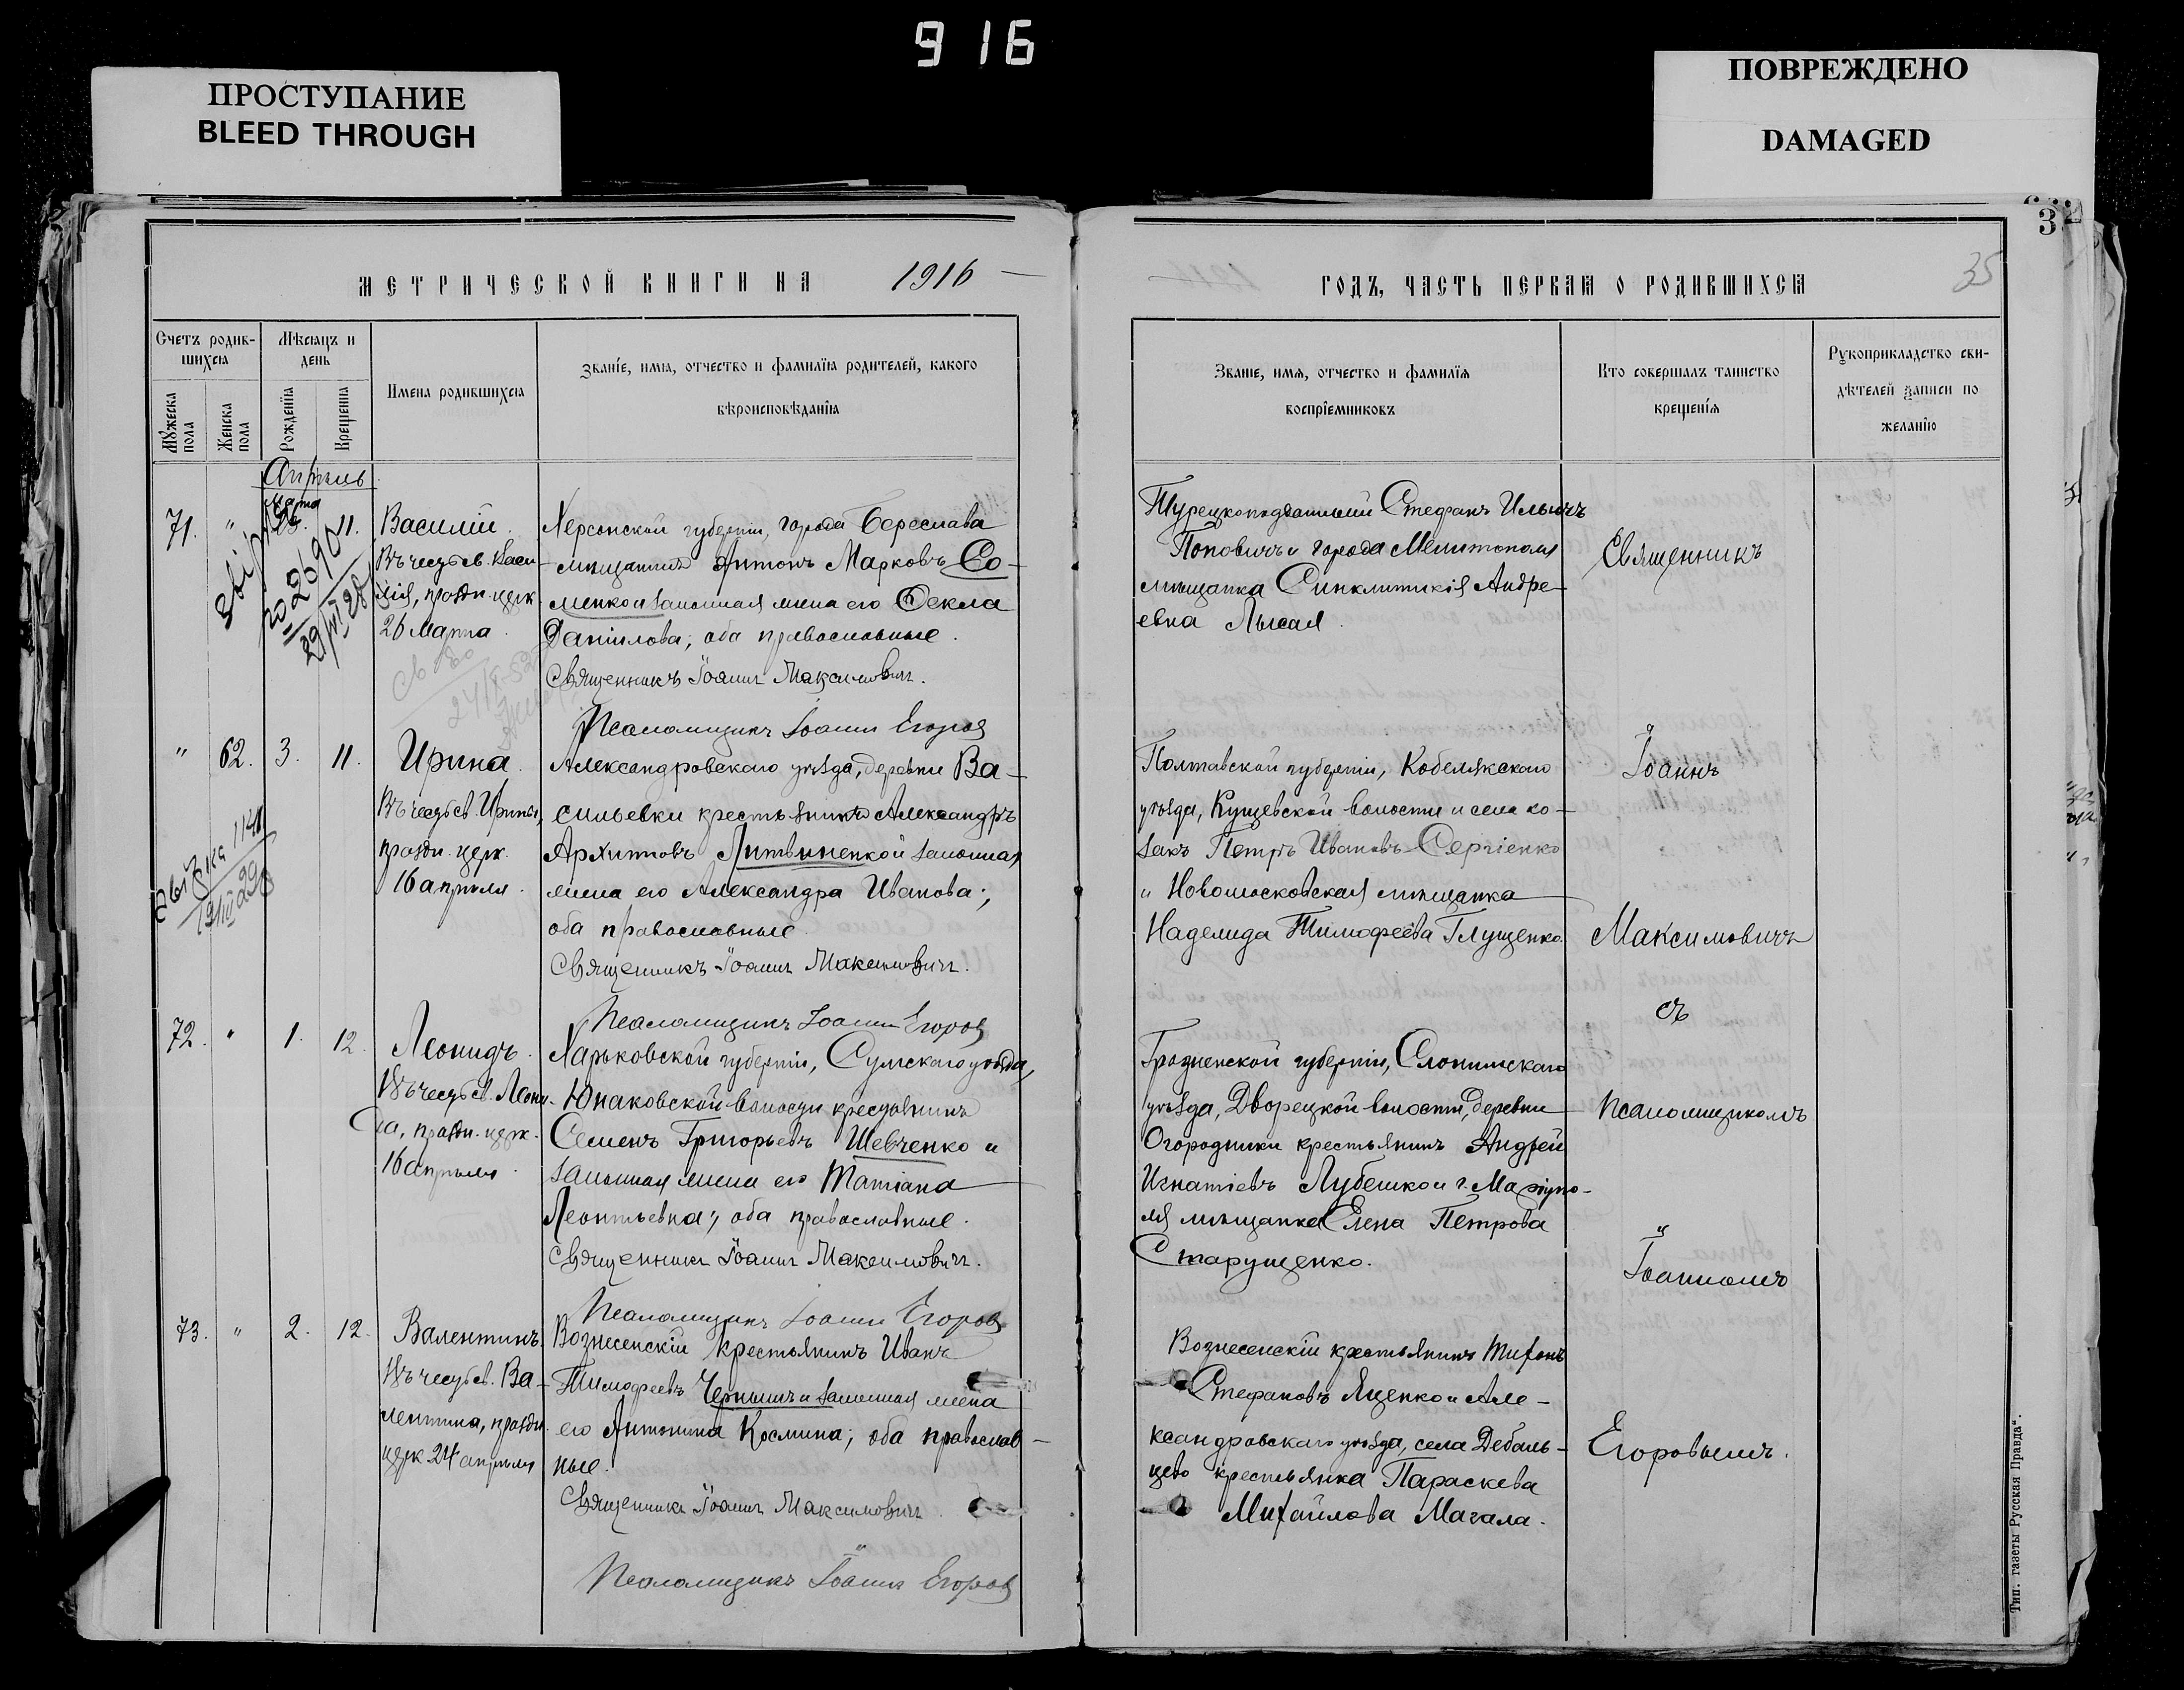 916
ПРОСТУПАНИЕ
BLEED THROUGH
ПОВРЕЖДЕНО
DAMAGED
МЕТРИЧЕСКОЙ КНИГИ НА 1916
Счетъ родив-
шихся
Мѣсяцъ и
день
Мужеска
пола
Женска
пола
Рожденія
Крещенія
Имена родившихся
Званіе, имя, отчество и фамилія родителей, какого
вѣроисповѣданія
Апрѣль
71. " Марта 11.
Василій.
Въ честь св. Васи-
лія, праздн. церк.
26 марта.
Херсонской губерніи, города Береслава
мѣщанинъ Антонъ Марковъ Со-
менко и законная жена его Ѳекла
Даніилова; оба православные.
Священникъ Іоаннъ Максимович.
Псаломщикъ Іоаннъ Егоров
2690
" 62. 3. 11.
Ирина.
Въ честь св. Ирины,
праздн. церк.
16 апрѣля.
Александровскаго уѣзда, деревни Ва-
сильевки крестьянинъ Александръ
Архиповъ Литвиненко и законная
жена его Александра Иванова;
оба православные.
Священникъ Іоаннъ Максимович.
Псаломщикъ Іоаннъ Егоров
72. " 1. 12.
Леонидъ.
Въ честь св. Леони-
да, праздн. церк.
16 апрѣля.
Харьковской губерніи, Сумскаго уѣзда,
Юнаковской волости крестьянинъ
Семенъ Григорьевъ Шевченко и
законная жена его Татіана
Леонтьевна; оба православные.
Священникъ Іоаннъ Максимович.
Псаломщикъ Іоаннъ Егоров
73. " 2. 12.
Валентинъ.
Въ честь св. Ва-
лентина, праздн.
церк. 24 апрѣля
Вознесенскій крестьянинъ Иванъ
Тимофеевъ Чернышъ и законная жена
его Антонина Космина; оба православ-
ные.
Священникъ Іоаннъ Максимович.
Псаломщикъ Іоаннъ Егоров
3
35
ГОДЪ, ЧАСТЬ ПЕРВАЯ О РОДИВШИХСЯ
Званіе, имя, отчество и фамилія
воспріемниковъ
Кто совершалъ таинство
крещенія
Рукоприкладство сви-
дѣтелей записи по
желанію
Турецкоподданный Стефанъ Ильичъ
Поповичъ и города Мелитополя
мѣщанка Синклитикія Андре-
евна Лысая.
Полтавской губерніи, Кобелякскаго
уѣзда, Кущевской волости и села ко-
закъ Петръ Ивановъ Сергіенко
и Новомосковская мѣщанка
Надежда Тимофеева Глущенко.
Гродненской губерніи, Слонимскаго
уѣзда, Дворецкой волости, деревни
Огородники крестьянинъ Андрей
Игнатіевъ Лубешко и г. Маріупо-
ля мѣщанка Елена Петрова
Старущенко.
Вознесенскій крестьянинъ Тихонъ
Стефановъ Яценко и Але-
ксандровскаго уѣзда, села Дебаль-
цево крестьянка Параскева
Михайлова Магала.
Священникъ
Іоаннъ
Максимовичъ
съ
псаломщикомъ
Іоанномъ
Егоровымъ.
Тип. газеты „Русская Правда“.